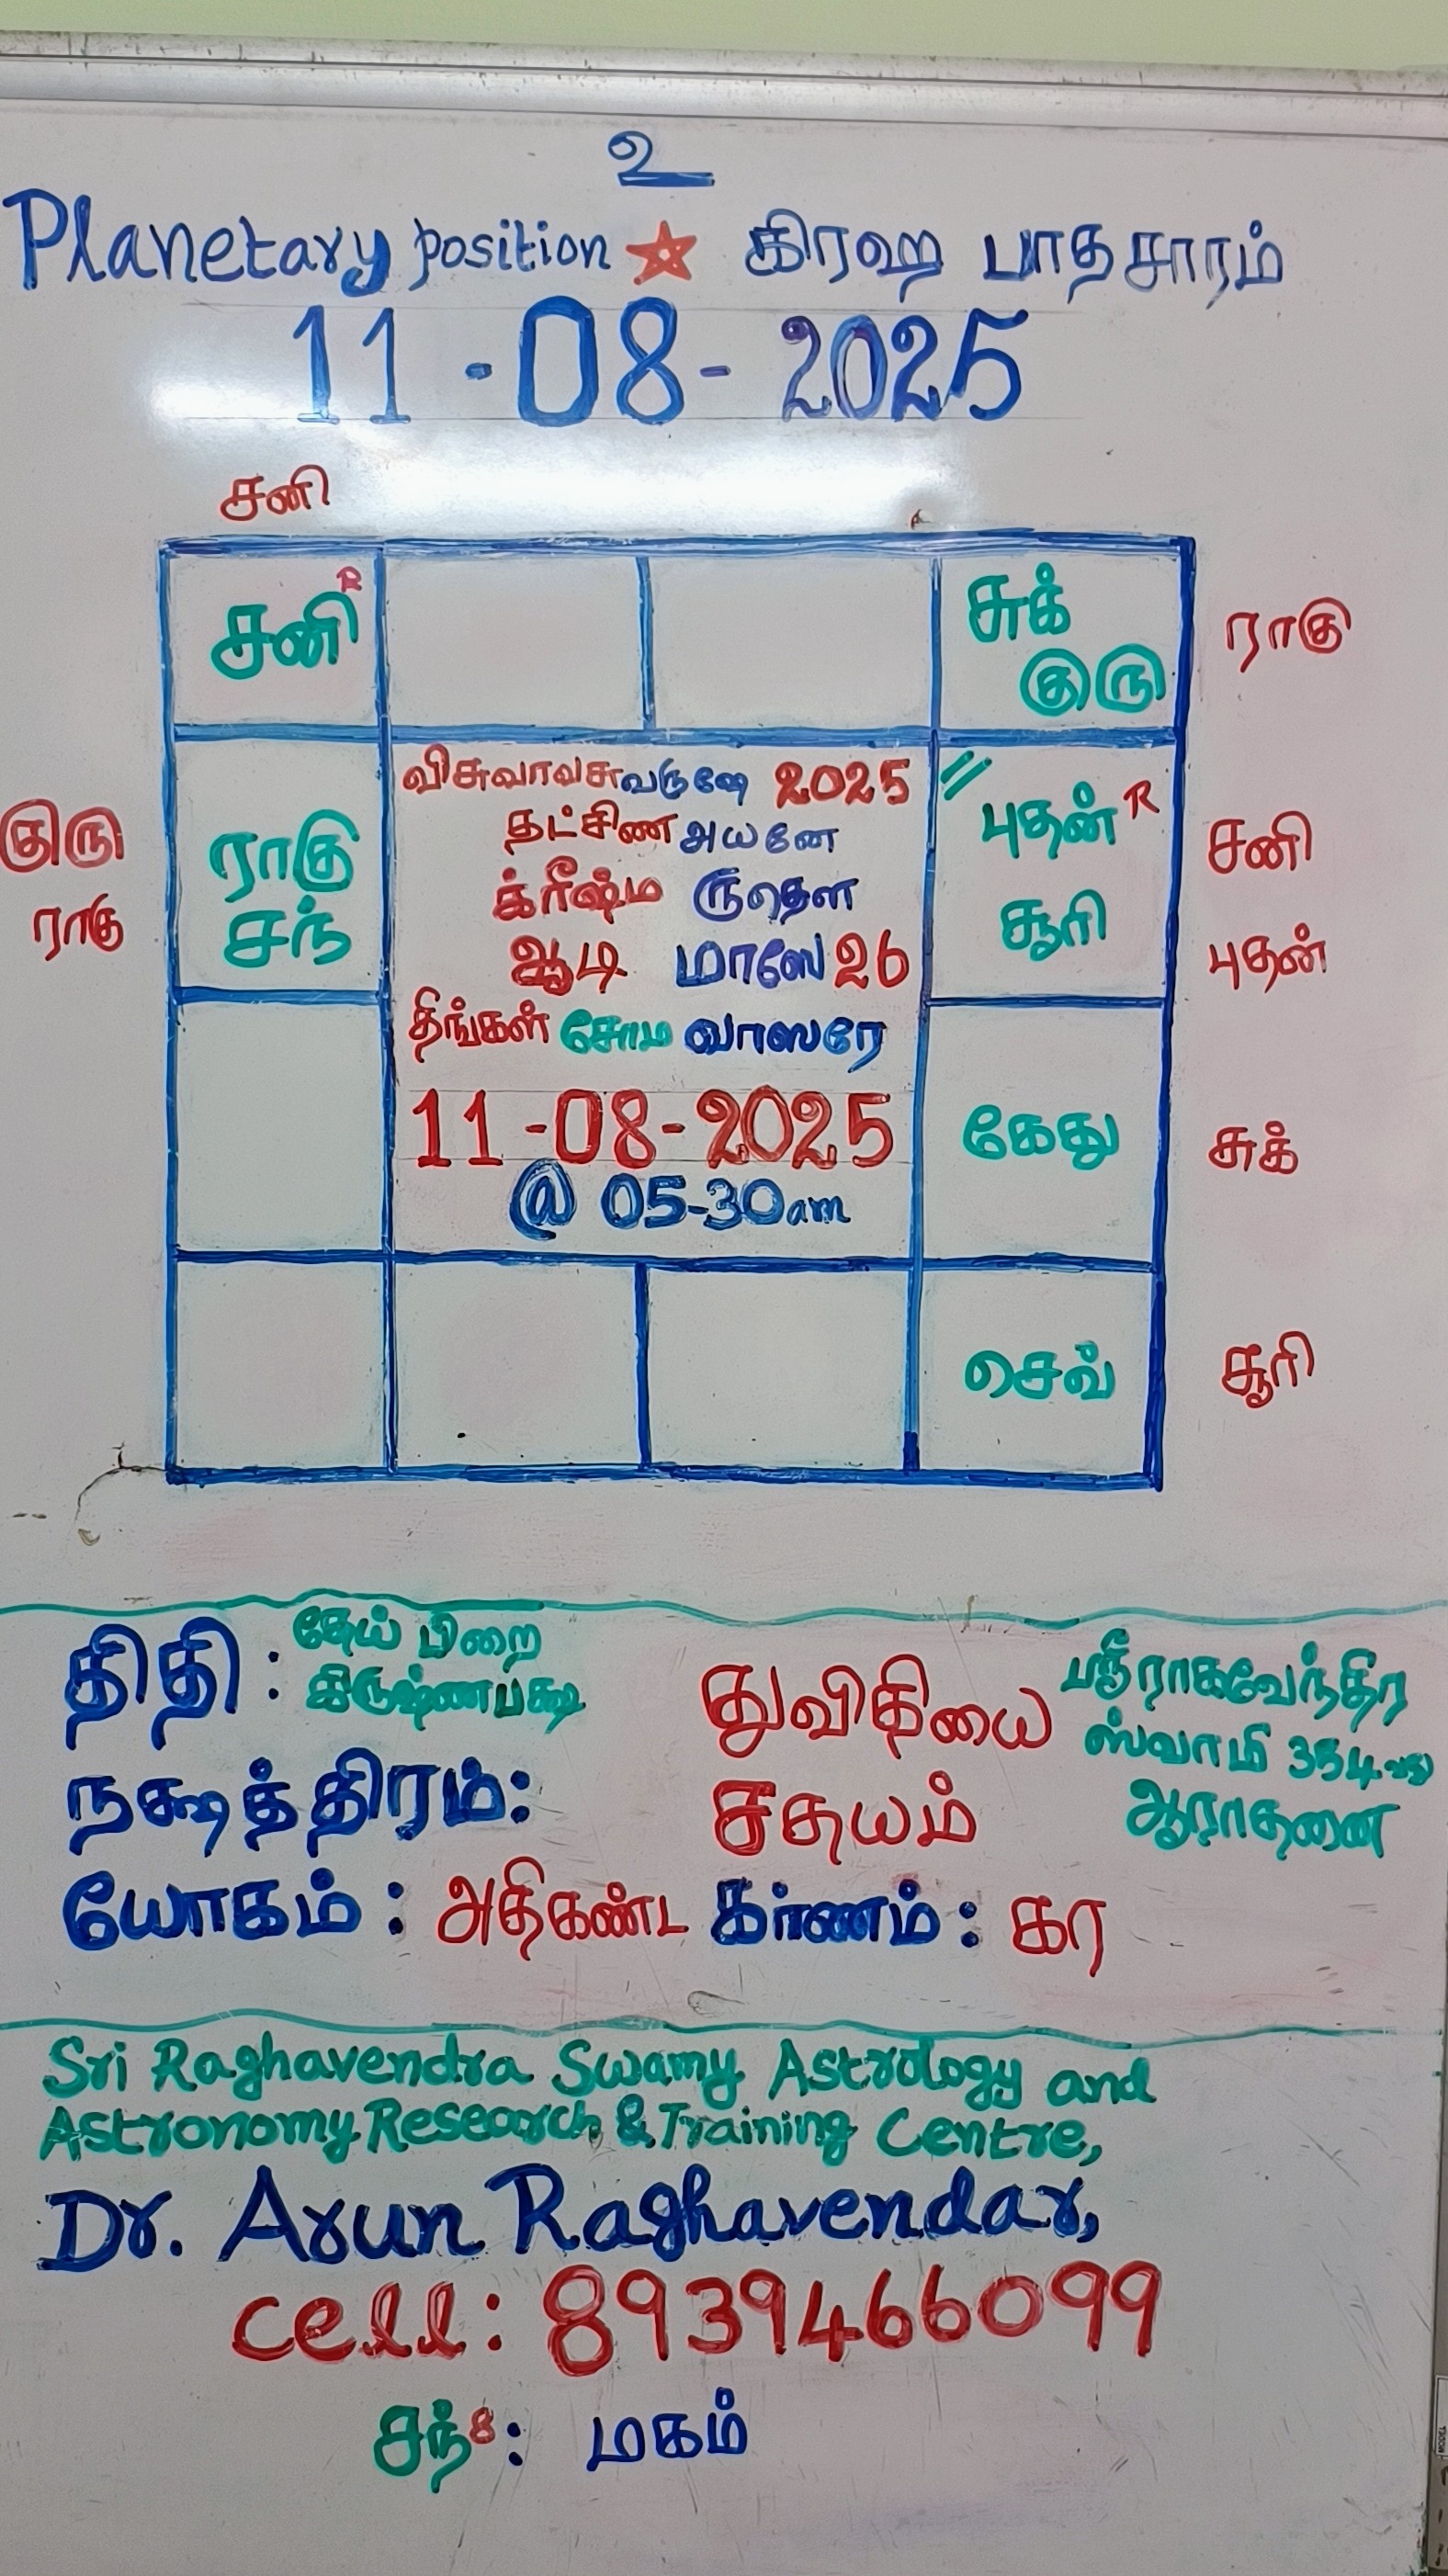 உ
Planetary position ☆ கிரஹ பாதசாரம்
11-08-2025
சனி
சனி R
சுக்
குரு
ராகு
விசுவாவசுவருஷே 2025
தட்சிண அயனே
க்ரீஷ்ம ருதௌ
ஆடி மாஸே 26
திங்கள் சோம வாஸரே
11-08-2025
@ 05-30am
குரு
ராகு
ராகு
சந்
புதன் R
சூரி
சனி
புதன்
கேது
சுக்
செவ்
சூரி
திதி : தேய் பிறை
கிருஷ்ணபக்ஷ
துவிதியை
ஸ்ரீராகவேந்திர
ஸ்வாமி 354வது
ஆராதனை
நக்ஷத்திரம்: சதயம்
யோகம் : அதிகண்ட கர்ணம் : கர
Sri Raghavendra Swamy Astrology and
Astronomy Research & Training Centre,
Dr. Arun Raghavendar,
cell: 8939466099
சந்8: மகம்